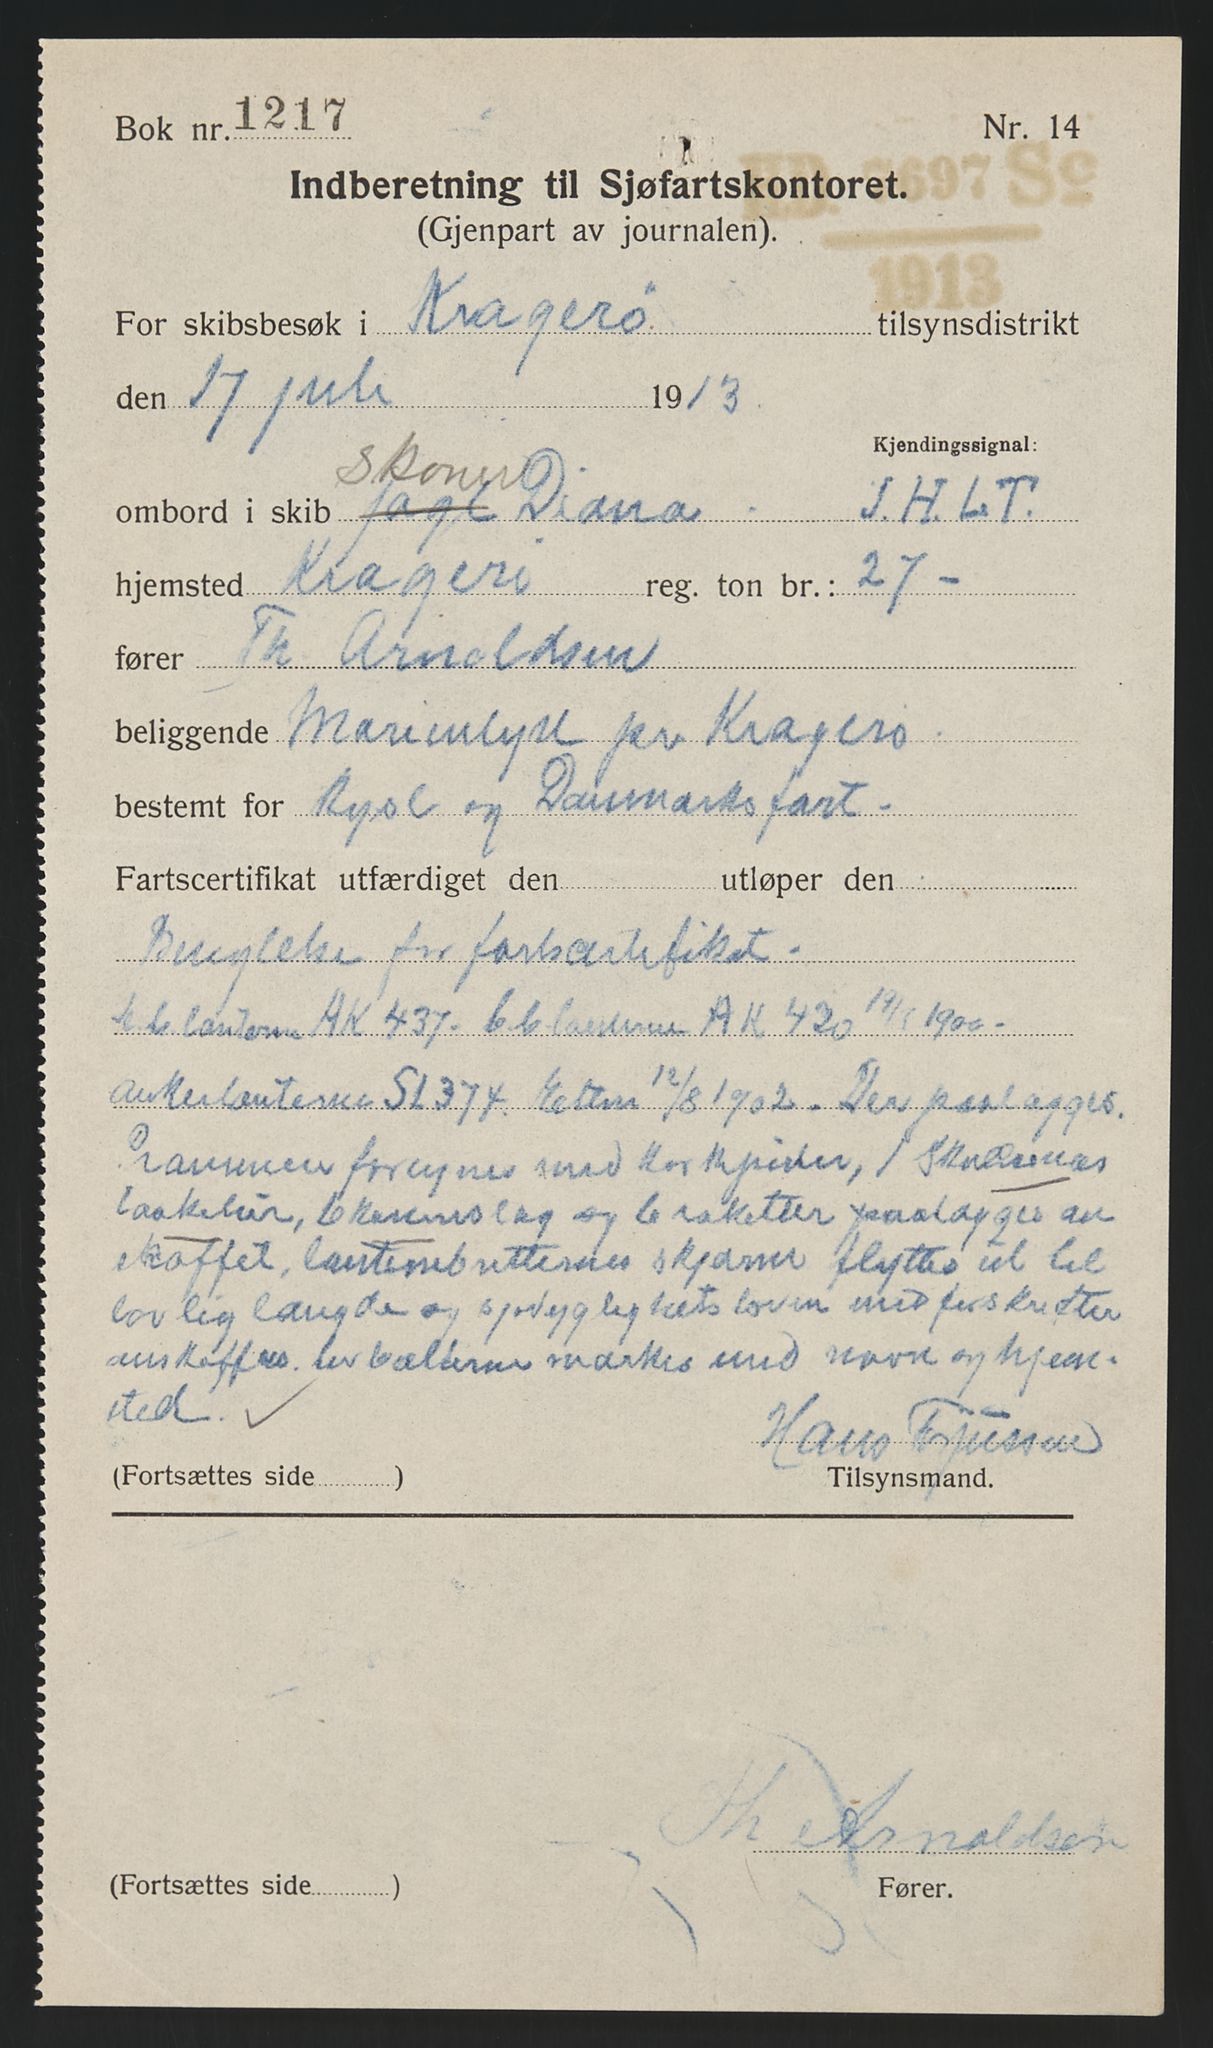 Bok nr. 1217
Nr. 14
HD. 5697 Sc
1913
Indberetning til Sjøfartskontoret.
(Gjenpart av journalen).
For skibsbesøk i Kragerö tilsynsdistrikt
den 17 juli 1913.
Kjendingssignal:
Skoner
ombord i skib jagt Diana. J.H.L.T.
hjemsted Kragerö reg. ton br.: 27 -
fører Th Arnoldsen
beliggende Marienlyst pr Kragerö.
bestemt for Kyst og Danmarksfart -
Fartscertifikat utfærdiget den utløper den
for fartscertifikat -
lanterne AK 437. lanterne AK 420 1900 -
ankerlanterne SL 374. 12/8 1902. Der paalægges.
Prammen forsynes med korkputer, 1
taakelur, 6 kanonslag og 6 raketter paalægges an
skaffet, lanternbrætternes skjærme flyttes ut til
lovlig længde og sjødyglighetsloven med forskrifter
anskaffes. livbælterne mærkes med navn og hjem-
sted.
Hans
(Fortsættes side )
Tilsynsmand.
Th Arnoldsen
(Fortsættes side )
Fører.